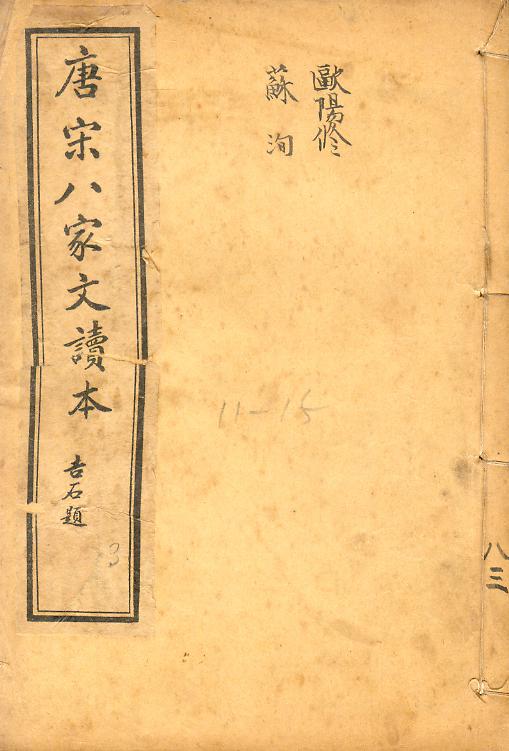 歐陽修
蘇洵
唐宋八家文讀本
吉石題
3
11-15
八三